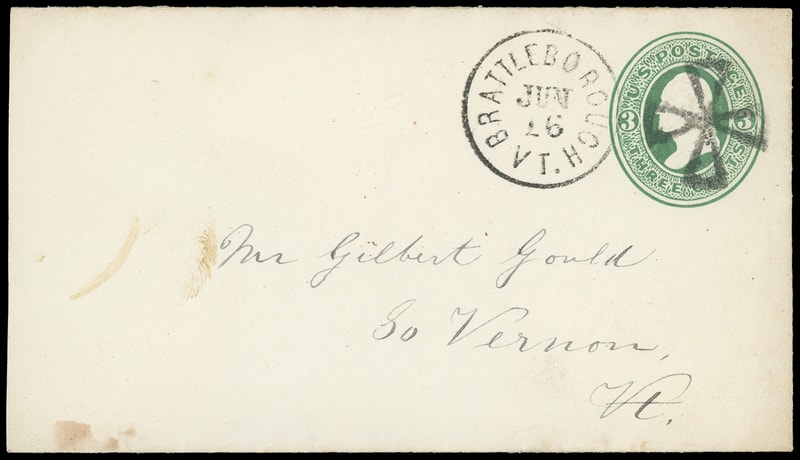 BRATTLEBOROUGH VT.
JUN
16
U.S. POSTAGE
3 3
THREE CENTS
Mr Gilbert Gould
So Vernon,
Vt.